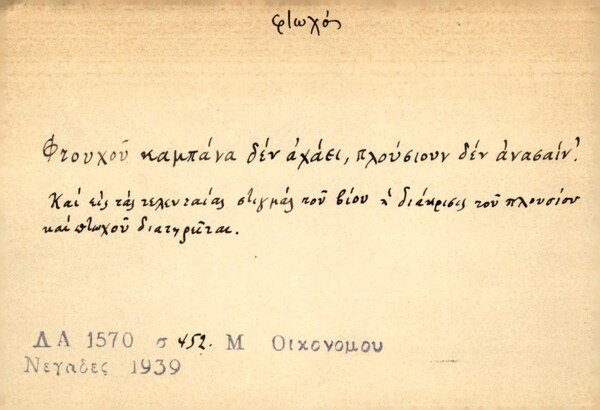 φτωχός
Φτουχοῦ καμπάνα δέν ἀχάει, πλούσιουν δέν ἀνασαίν'.
Καί εἰς τάς τελευταίας στιγμάς τοῦ βίου ἡ διάκρισις τοῦ πλουσίου
καί πτωχοῦ διατηρεῖται.
ΛΑ 1570 σ 452. Μ Οικονομου
Νεγαδες 1939